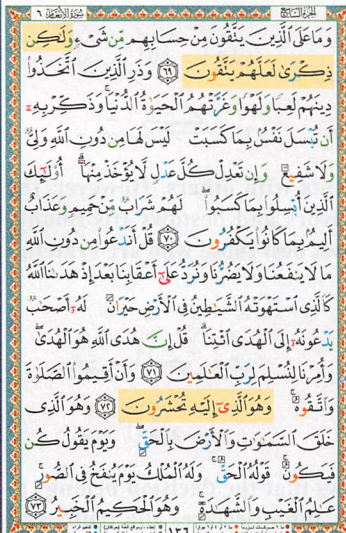 الجزء السابع سورة الأنعام ٦
وَمَا عَلَى ٱلَّذِينَ يَتَّقُونَ مِنْ حِسَابِهِم مِّن شَىْءٍ وَلَٰكِن
ذِكْرَىٰ لَعَلَّهُمْ يَتَّقُونَ ٦٩ وَذَرِ ٱلَّذِينَ ٱتَّخَذُوا۟
دِينَهُمْ لَعِبًا وَلَهْوًا وَغَرَّتْهُمُ ٱلْحَيَوٰةُ ٱلدُّنْيَا ۚ وَذَكِّرْ بِهِۦٓ
أَن تُبْسَلَ نَفْسٌۢ بِمَا كَسَبَتْ لَيْسَ لَهَا مِن دُونِ ٱللَّهِ وَلِىٌّ
وَلَا شَفِيعٌ وَإِن تَعْدِلْ كُلَّ عَدْلٍ لَّا يُؤْخَذْ مِنْهَآ ۗ أُو۟لَٰٓئِكَ
ٱلَّذِينَ أُبْسِلُوا۟ بِمَا كَسَبُوا۟ ۖ لَهُمْ شَرَابٌ مِّنْ حَمِيمٍ وَعَذَابٌ
أَلِيمٌۢ بِمَا كَانُوا۟ يَكْفُرُونَ ٧٠ قُلْ أَنَدْعُوا۟ مِن دُونِ ٱللَّهِ
مَا لَا يَنفَعُنَا وَلَا يَضُرُّنَا وَنُرَدُّ عَلَىٰٓ أَعْقَابِنَا بَعْدَ إِذْ هَدَىٰنَا ٱللَّهُ
كَٱلَّذِى ٱسْتَهْوَتْهُ ٱلشَّيَٰطِينُ فِى ٱلْأَرْضِ حَيْرَانَ لَهُۥٓ أَصْحَٰبٌ
يَدْعُونَهُۥٓ إِلَى ٱلْهُدَى ٱئْتِنَا ۗ قُلْ إِنَّ هُدَى ٱللَّهِ هُوَ ٱلْهُدَىٰ ۖ
وَأُمِرْنَا لِنُسْلِمَ لِرَبِّ ٱلْعَٰلَمِينَ ٧١ وَأَنْ أَقِيمُوا۟ ٱلصَّلَوٰةَ
وَٱتَّقُوهُ ۚ وَهُوَ ٱلَّذِىٓ إِلَيْهِ تُحْشَرُونَ ٧٢ وَهُوَ ٱلَّذِى
خَلَقَ ٱلسَّمَٰوَٰتِ وَٱلْأَرْضَ بِٱلْحَقِّ ۖ وَيَوْمَ يَقُولُ كُن
فَيَكُونُ ۚ قَوْلُهُ ٱلْحَقُّ ۚ وَلَهُ ٱلْمُلْكُ يَوْمَ يُنفَخُ فِى ٱلصُّورِ ۚ
عَٰلِمُ ٱلْغَيْبِ وَٱلشَّهَٰدَةِ ۚ وَهُوَ ٱلْحَكِيمُ ٱلْخَبِيرُ ٧٣
١٣٦